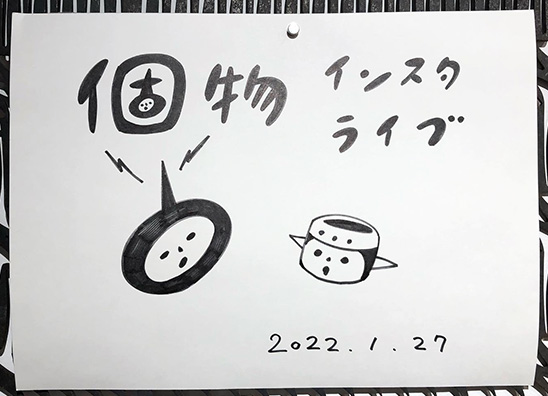 個物
インスタ
ライブ
2022.1.27